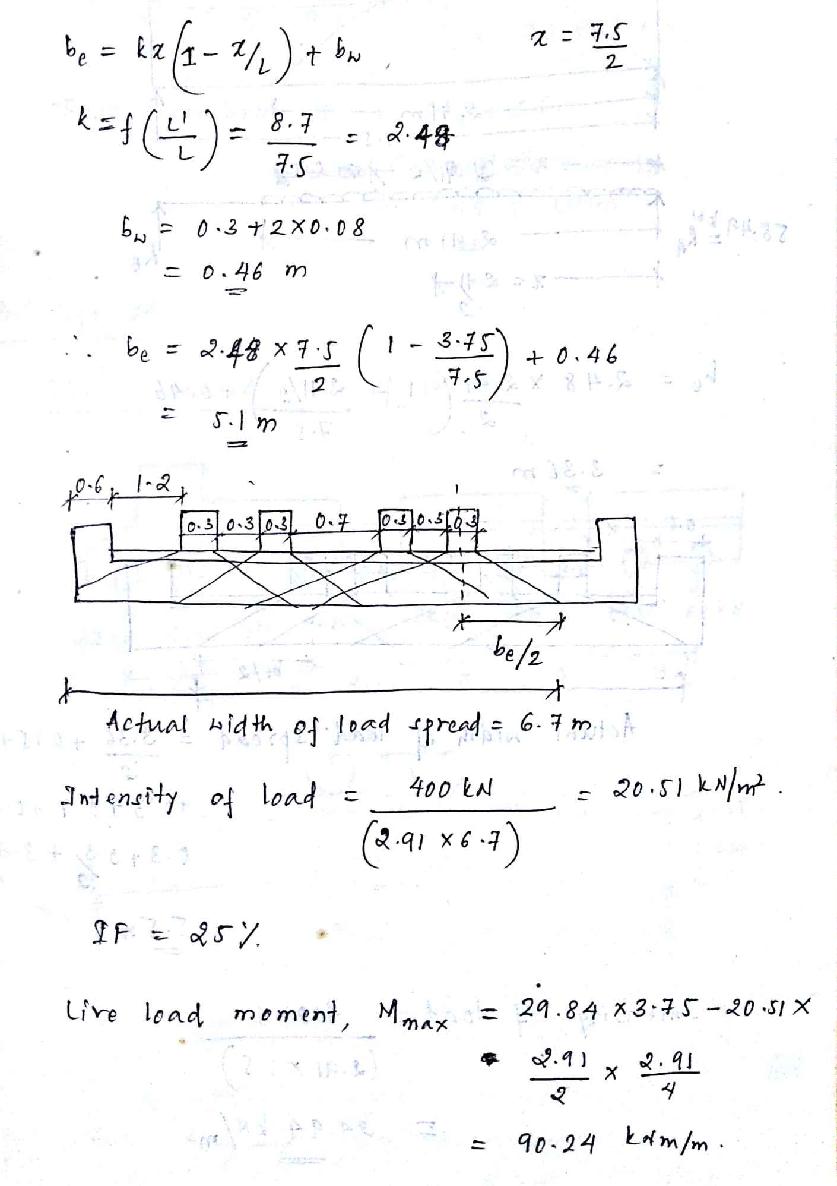 be = kx(1 - x/L) + bw , x = 7.5/2
k = f(L'/L) = 8.7/7.5 = 2.48
bw = 0.3 + 2 × 0.08
= 0.46 m
∴ be = 2.48 × 7.5/2 (1 - 3.75/7.5) + 0.46
= 5.1 m
0.6 1.2
0.3 0.3 0.3 0.7 0.3 0.3 0.3
be/2
Actual width of load spread = 6.7 m
Intensity of load = 400 kN/(2.91 × 6.7) = 20.51 kN/m².
IF = 25 %.
Live load moment, Mmax = 29.84 × 3.75 - 20.51 ×
2.91/2 × 2.91/4
= 90.24 kNm/m.